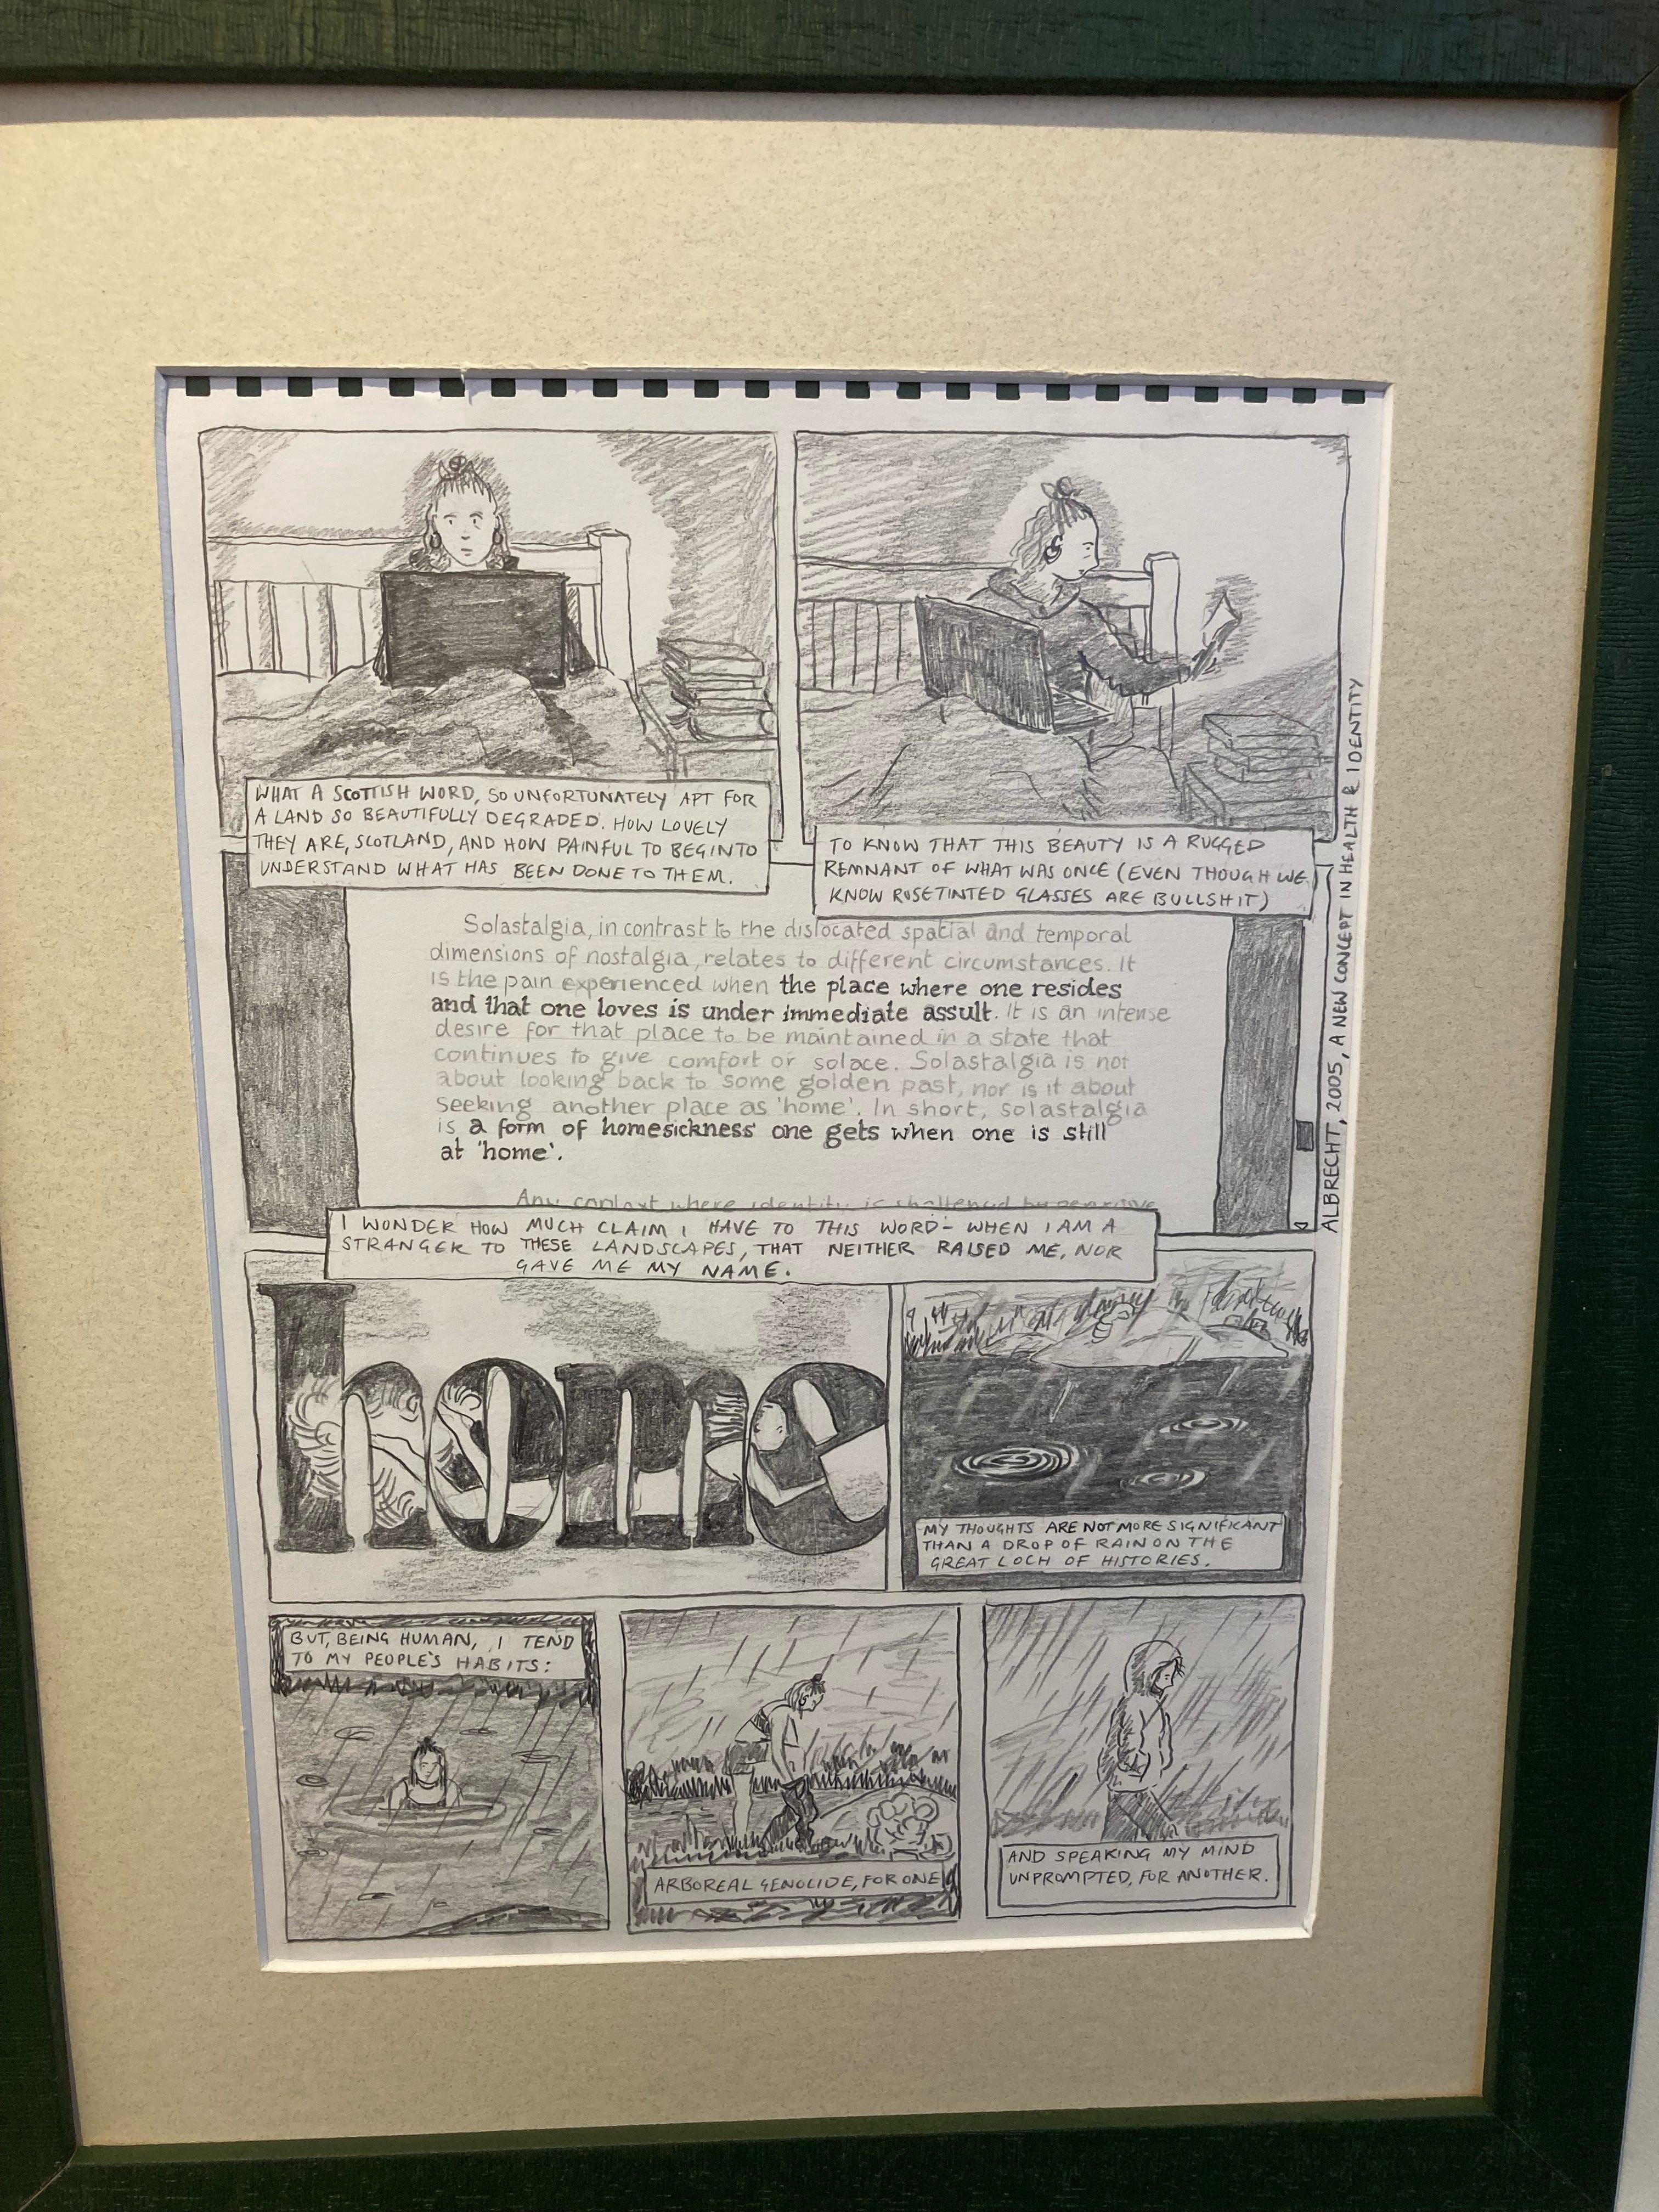 WHAT A SCOTTISH WORD, SO UNFORTUNATELY APT FOR
A LAND SO BEAUTIFULLY DEGRADED. HOW LOVELY
THEY ARE, SCOTLAND, AND HOW PAINFUL TO BEGIN TO
UNDERSTAND WHAT HAS BEEN DONE TO THEM.
TO KNOW THAT THIS BEAUTY IS A RUGGED
REMNANT OF WHAT WAS ONCE (EVEN THOUGH WE
KNOW ROSETINTED GLASSES ARE BULLSHIT)
Solastalgia, in contrast to the dislocated spatial and temporal
dimensions of nostalgia, relates to different circumstances. It
is the pain experienced when the place where one resides
and that one loves is under immediate assult. It is an intense
desire for that place to be maintained in a state that
continues to give comfort or solace. Solastalgia is not
about looking back to some golden past, nor is it about
seeking another place as 'home'. In short, solastalgia
is a form of homesickness one gets when one is still
at 'home'.
Any context where identity is challenged by pervasive
ALBRECHT, 2005, A NEW CONCEPT IN HEALTH & IDENTITY
I WONDER HOW MUCH CLAIM I HAVE TO THIS WORD - WHEN I AM A
STRANGER TO THESE LANDSCAPES, THAT NEITHER RAISED ME, NOR
GAVE ME MY NAME.
home
MY THOUGHTS ARE NOT MORE SIGNIFICANT
THAN A DROP OF RAIN ON THE
GREAT LOCH OF HISTORIES.
BUT, BEING HUMAN, I TEND
TO MY PEOPLE'S HABITS:
ARBOREAL GENOCIDE, FOR ONE
AND SPEAKING MY MIND
UNPROMPTED, FOR ANOTHER.